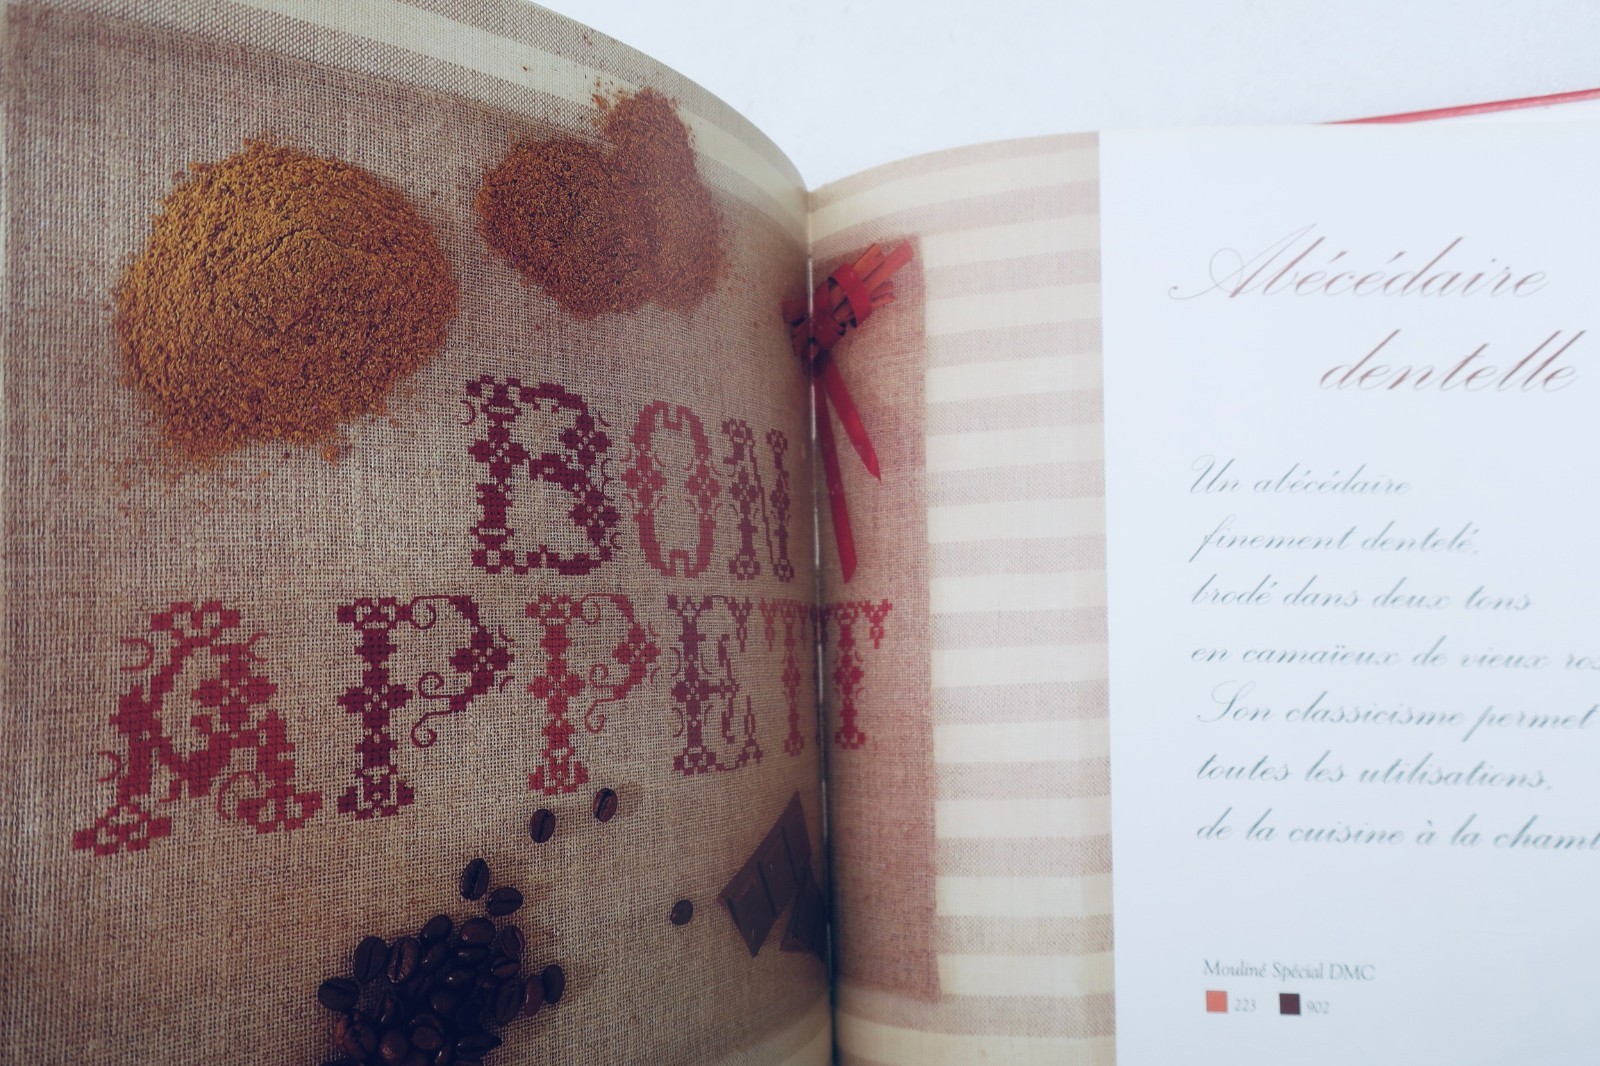 BON
APPETIT
Abécédaire
dentelle
Un abécédaire
finement dentelé,
brodé dans deux tons
en camaïeux de vieux
Son classicisme permet
toutes les utilisations,
de la cuisine à la
Mouliné Spécial DMC
223 902